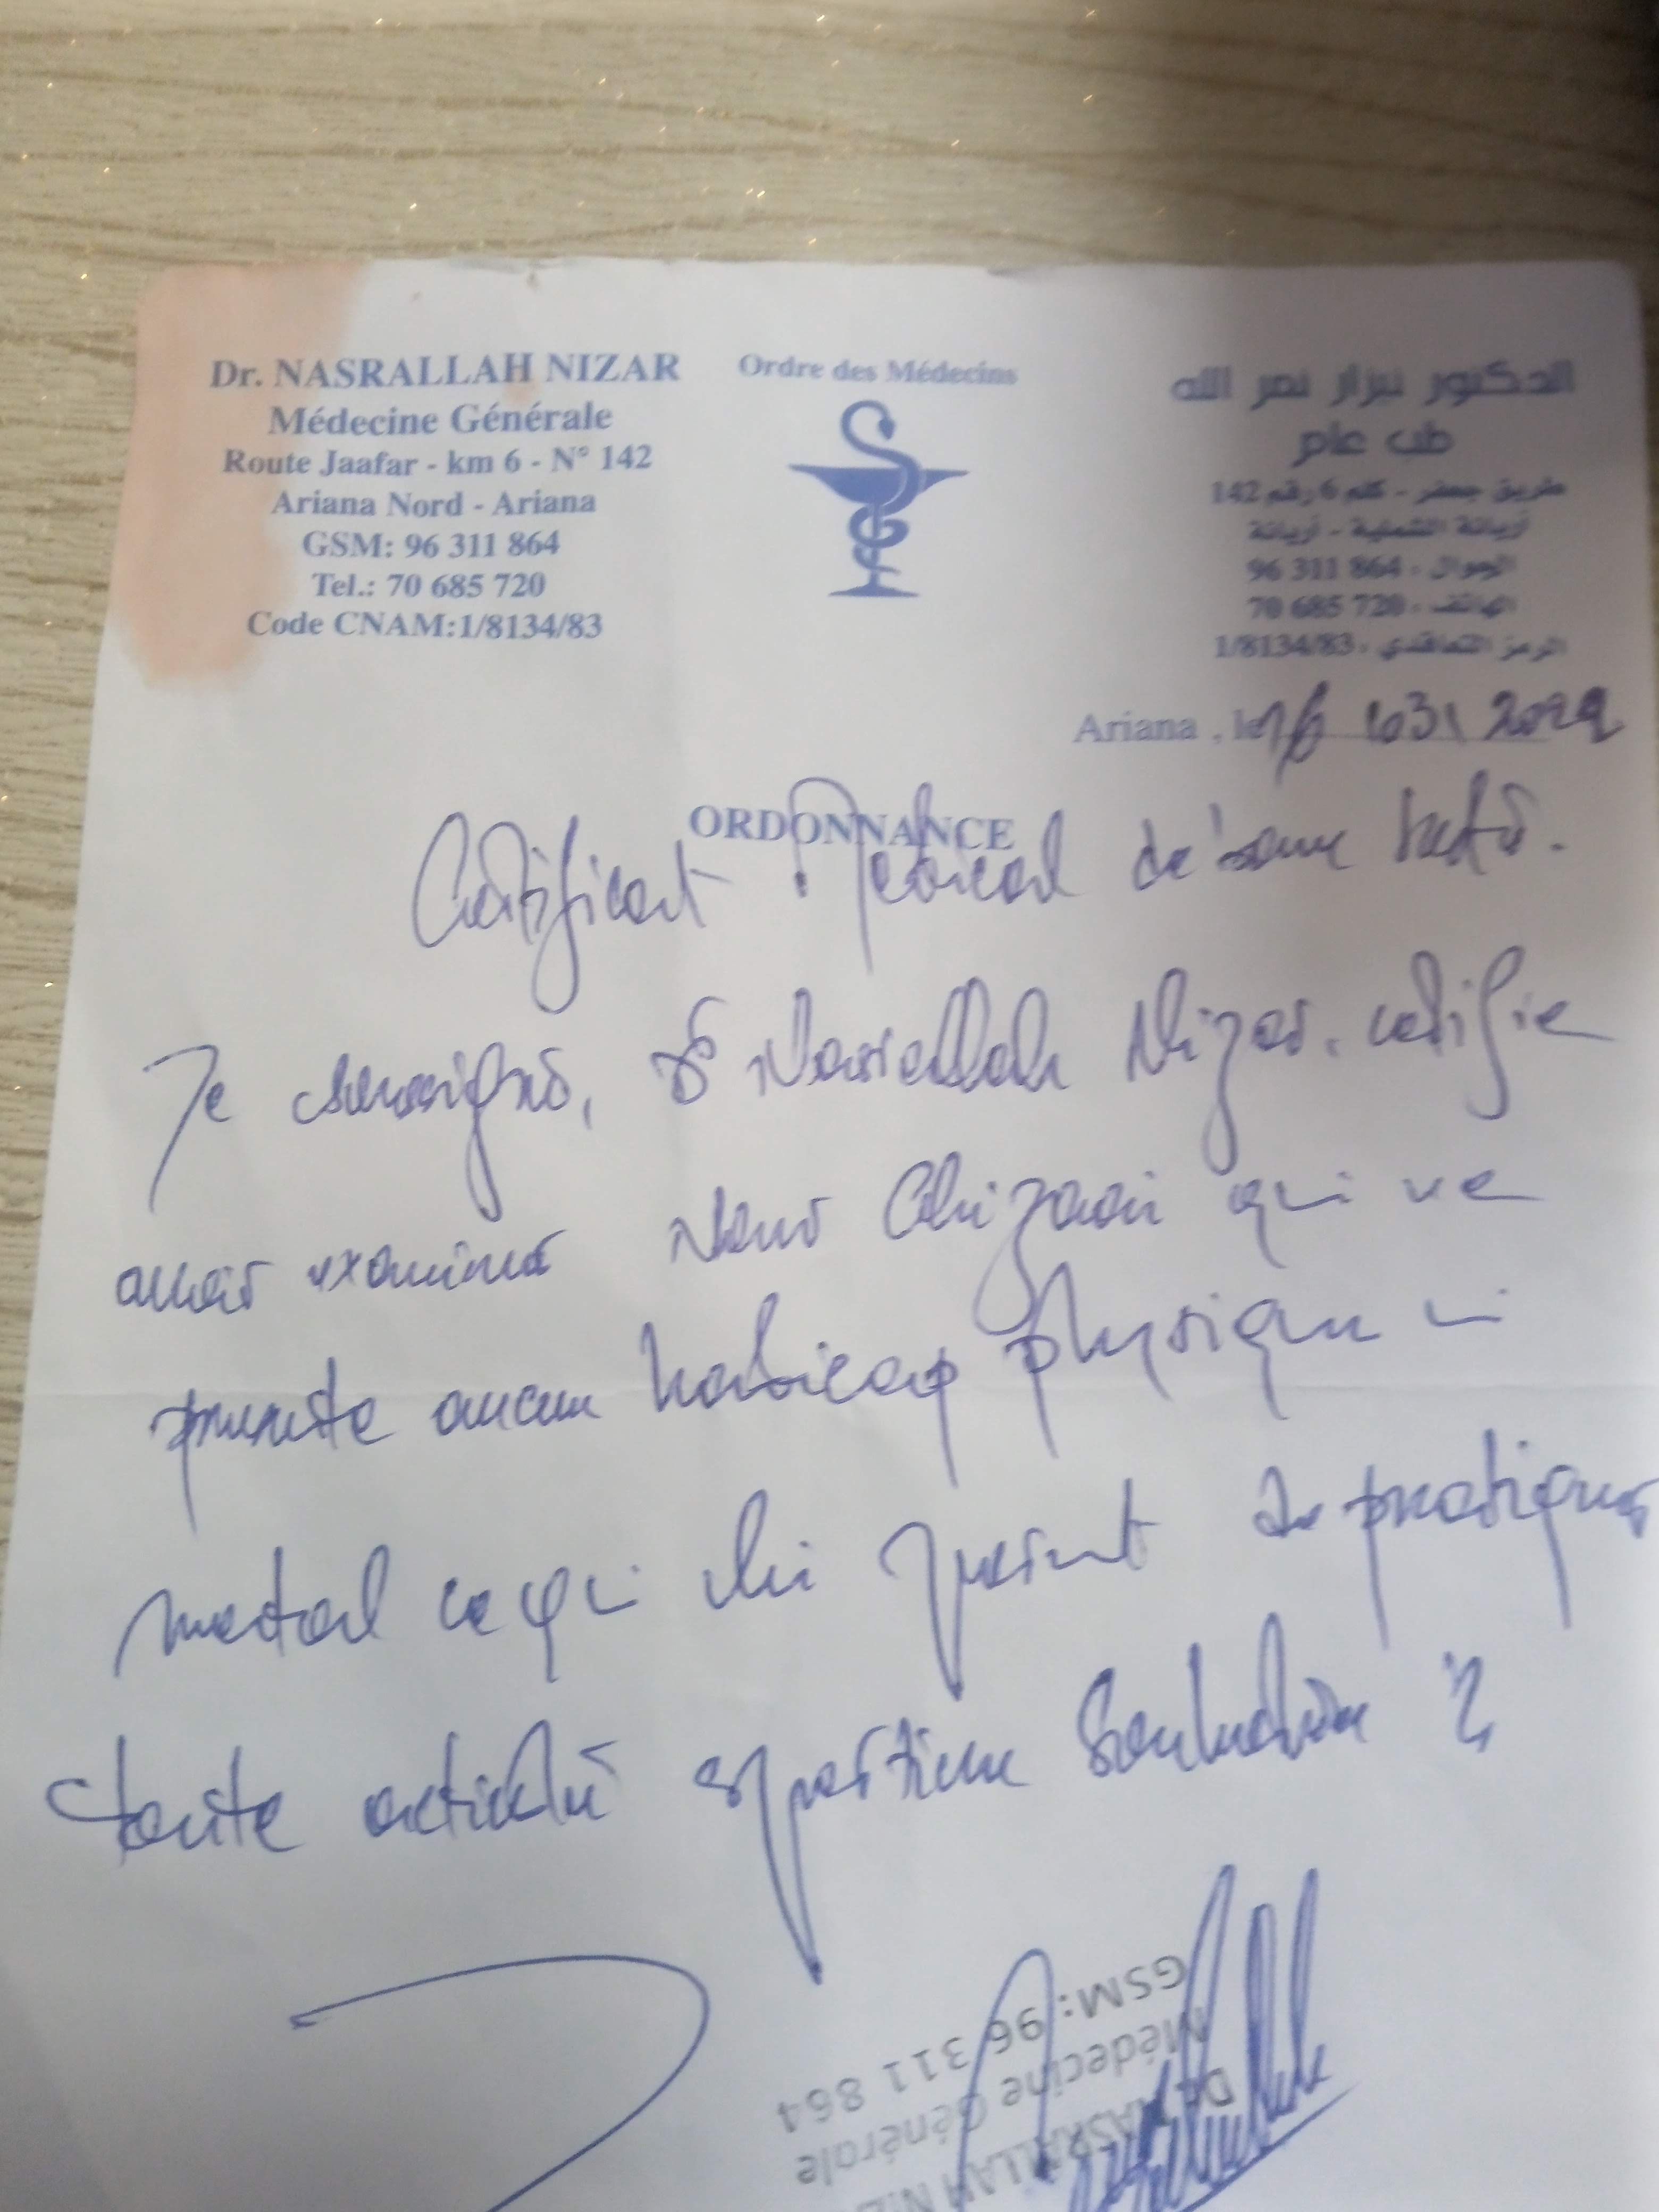 Dr. NASRALLAH NIZAR
Médecine Générale
Route Jaafar - km 6 - N° 142
Ariana Nord - Ariana
GSM: 96 311 864
Tel.: 70 685 720
Code CNAM:1/8134/83
Ordre des Médecins
الدكتور نيزار نصر الله
طب عام
طريق جعفر - كلم 6 رقم 142
أريانة الشمالية - أريانة
الجوال : 96 311 864
الهاتف : 70 685 720
الرمز التعاقدي : 1/8134/83
Ariana , le 16 03 2022
ORDONNANCE
Certificat Médical de santé.
Je soussigné, Dr Nasrallah Nizar, certifie
avoir examiné Ghizaoui qui ne
présente aucun handicap physique ni
mental ce qui lui permet de pratiquer
toute activité sportive
Dr NASRALLAH NIZAR
Médecine Générale
GSM: 96 311 864